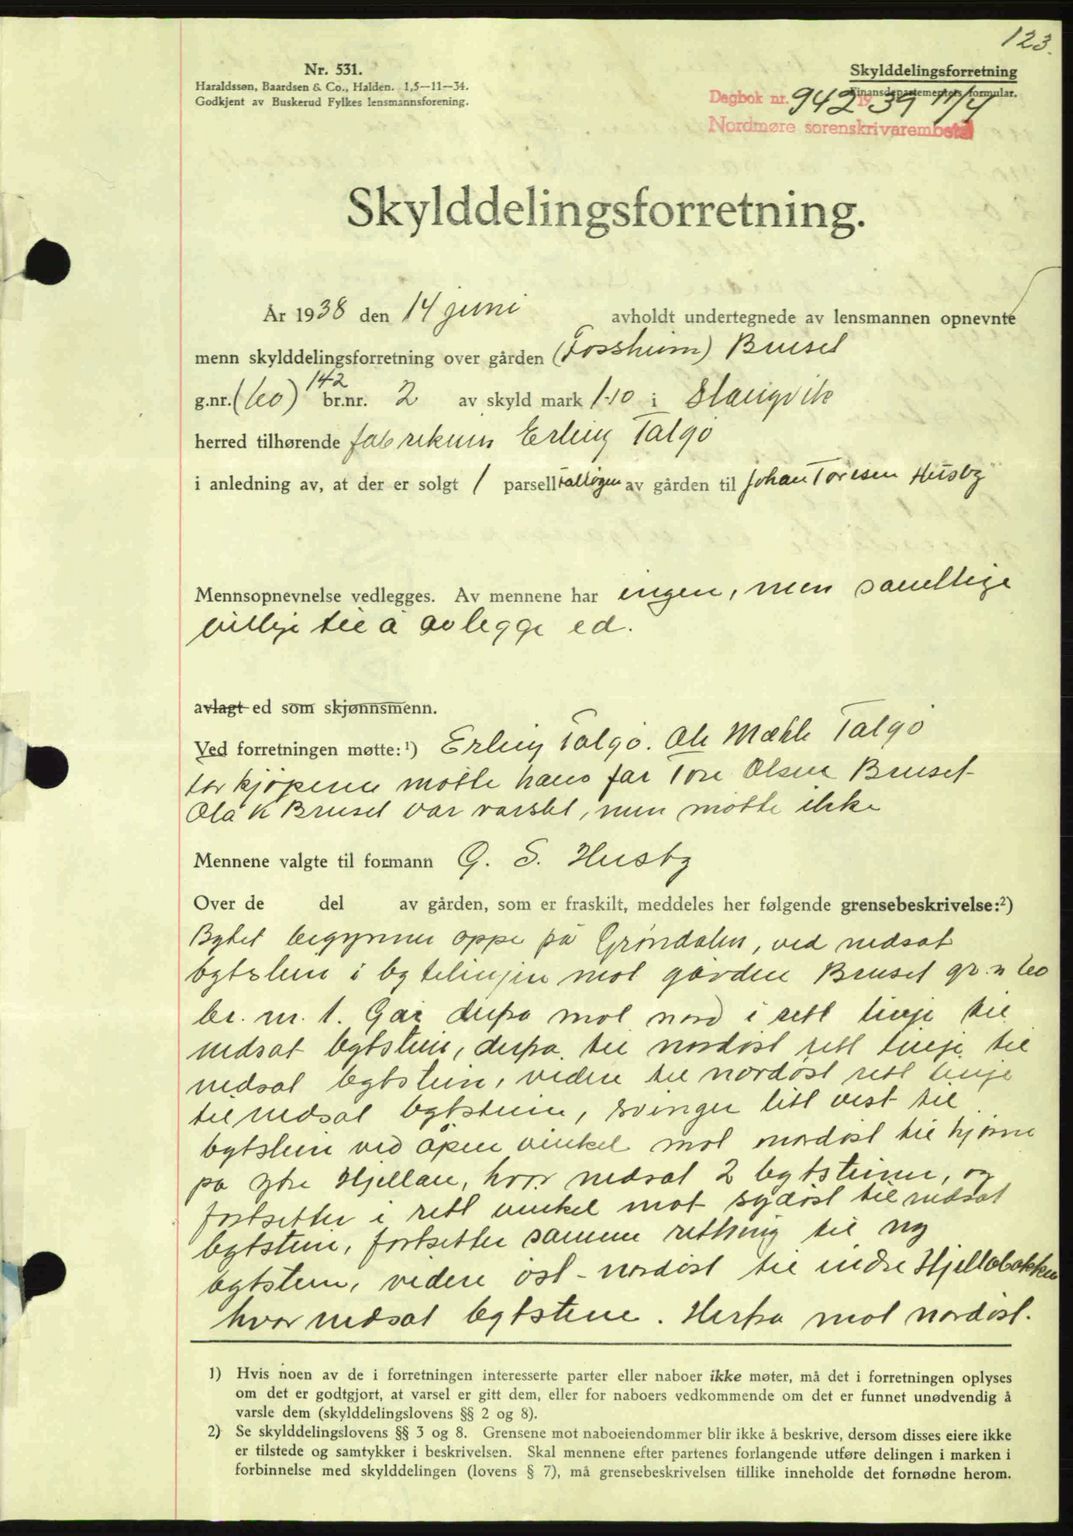 123.
Nr. 531.
Haraldssøn, Baardsen & Co., Halden. 1,5—11—34.
Godkjent av Buskerud Fylkes lensmannsforening.
Skylddelingsforretning
Finansdepartementets formular.
Dagbok nr. 942 1939 11/4
Nordmøre sorenskrivarembete
Skylddelingsforretning.
År 1938 den 14 juni avholdt undertegnede av lensmannen opnevnte
menn skylddelingsforretning over gården (Fossheim) Bruset
g.nr. (60) 142 br.nr. 2 av skyld mark 1-10 i Stangvik
herred tilhørende Erling Talgø
i anledning av, at der er solgt 1 parsell av gården til Johan Toresen Husby
Mennsopnevnelse vedlegges. Av mennene har ingen, men samtlige
villige til å avlegge ed.
avlagt ed som skjønnsmenn.
Ved forretningen møtte: ¹) Erling Talgø. Ole Mæhle Talgø
for kjøperen møtte hans far Tore Olsen Bruset
Ola K Bruset var varslet, men møtte ikke
Mennene valgte til formann G. S. Husby
Over de del av gården, som er fraskilt, meddeles her følgende grensebeskrivelse: ²)
Bytet begynner oppe på Grøndalen, ved nedsat
bytstein i bytelinjen mot gården Bruset gr.n 60
br. nr. 1. Går derfra mot nord i rett linje til
nedsat bytstein, derfra til nordøst rett linje til
nedsat bytstein, videre til nordøst rett linje
til nedsat bytstein, svinger litt vest til
bytstein ved åpen vinkel mot nordøst til hjørne
på ytre Hjellan, hvor nedsat 2 bytsteiner, og
fortsetter i rett vinkel mot sydøst til nedsat
bytstein, fortsetter samme retning til ny
bytstein, videre øst-nordøst til indre Hjellebakken
hvor nedsat bytstene. Herfra mot nordøst.
1) Hvis noen av de i forretningen interesserte parter eller naboer ikke møter, må det i forretningen oplyses
om det er godtgjort, at varsel er gitt dem, eller for naboers vedkommende om det er funnet unødvendig å
varsle dem (skylddelingslovens §§ 2 og 8).
2) Se skylddelingslovens §§ 3 og 8. Grensene mot naboeiendommer blir ikke å beskrive, dersom disses eiere ikke
er tilstede og samtykker i beskrivelsen. Skal mennene efter partenes forlangende utføre delingen i marken i
forbinnelse med skylddelingen (lovens § 7), må grensebeskrivelsen tillike inneholde det fornødne herom.